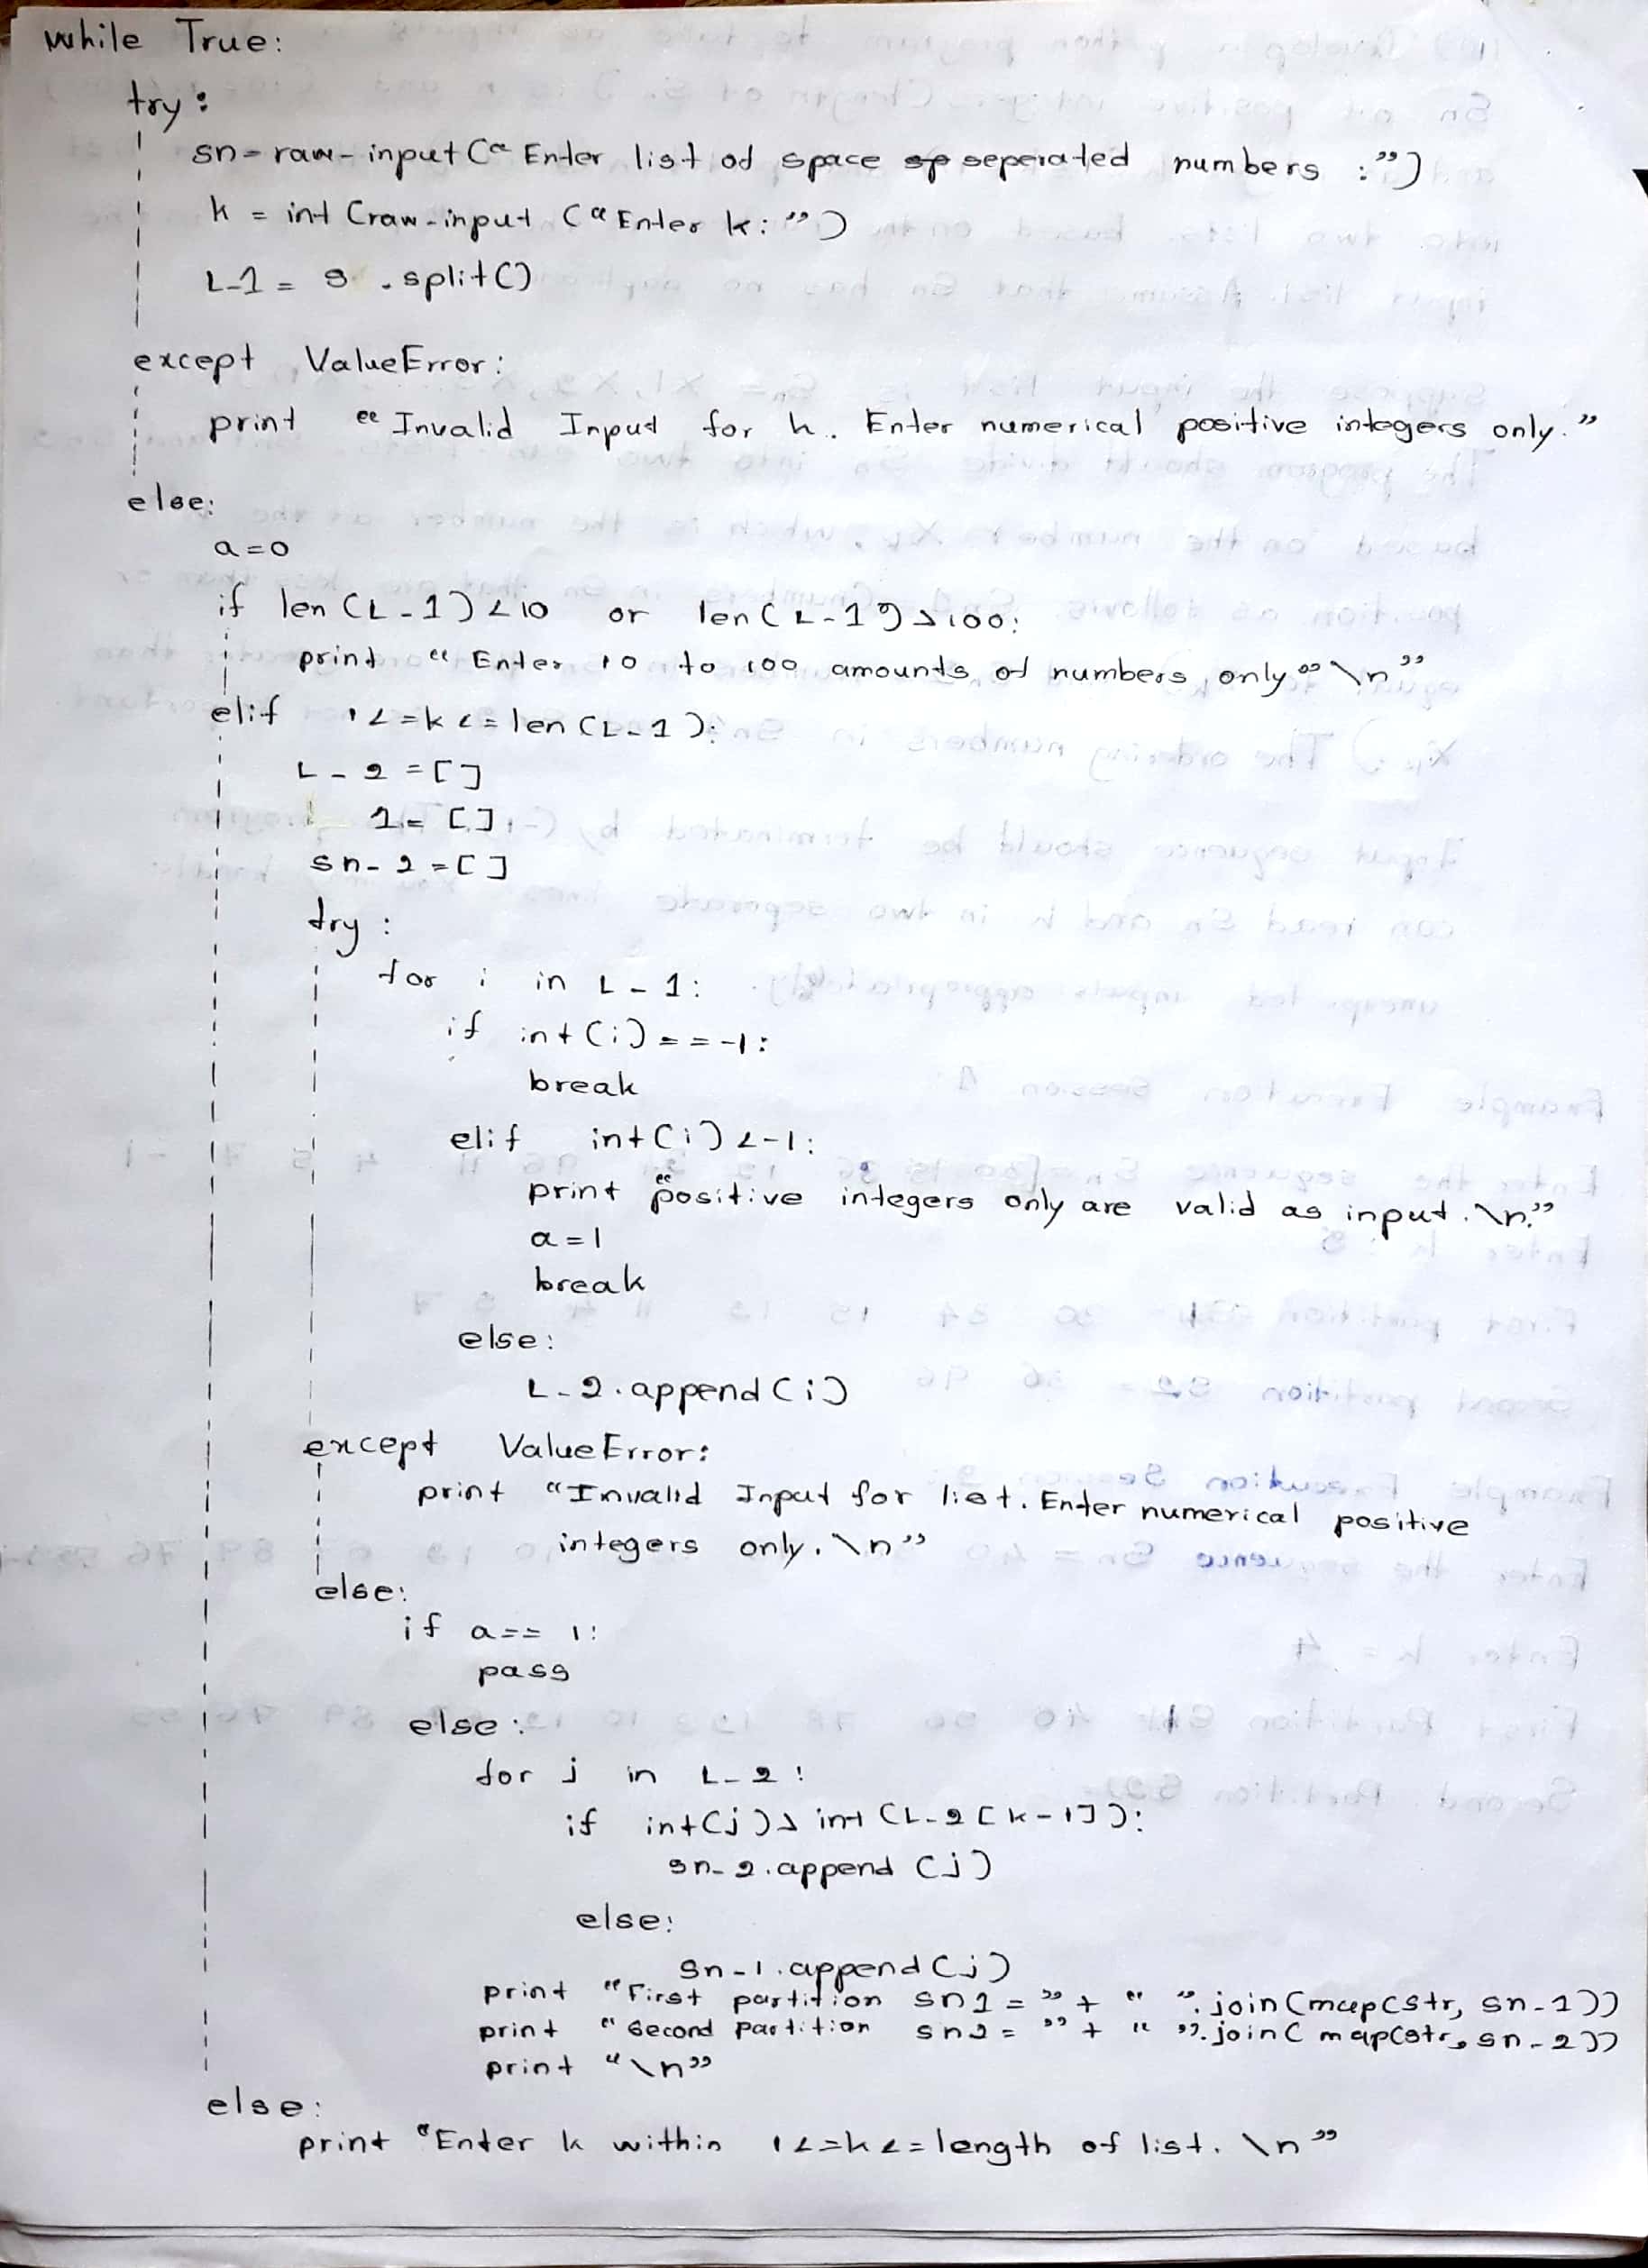 while True:
try:
sn=raw-input(“Enter list od space sp seperated numbers :”)
k = int (raw-input (“Enter k:”)
L-1 = s .split()
except ValueError:
print “Invalid Input for k. Enter numerical positive integers only.”
else:
a=0
if len (L-1) <10 or len(L-1)>100:
print “Enter 10 to 100 amounts of numbers only”\n”
elif 1<=k<=len(L-1):
L-2=[]
1=[]
sn-2=[]
try:
for i in L-1:
if int(i)==-1:
break
elif int(i)<-1:
print “positive integers only are valid as input.\n”
a=1
break
else:
L-2.append(i)
except ValueError:
print “Invalid Input for list. Enter numerical positive
integers only.\n”
else:
if a==1:
pass
else:
for j in L-2:
if int(j)> int (L-2[k-1]):
sn-2.append(j)
else:
sn-1.append(j)
print “First partition sn1=”+“ ”.join(map(str, sn-1))
print “Second partition sn2=”+“ ”.join(map(str, sn-2))
print “\n”
else:
print “Enter k within 1<=k<=length of list.\n”